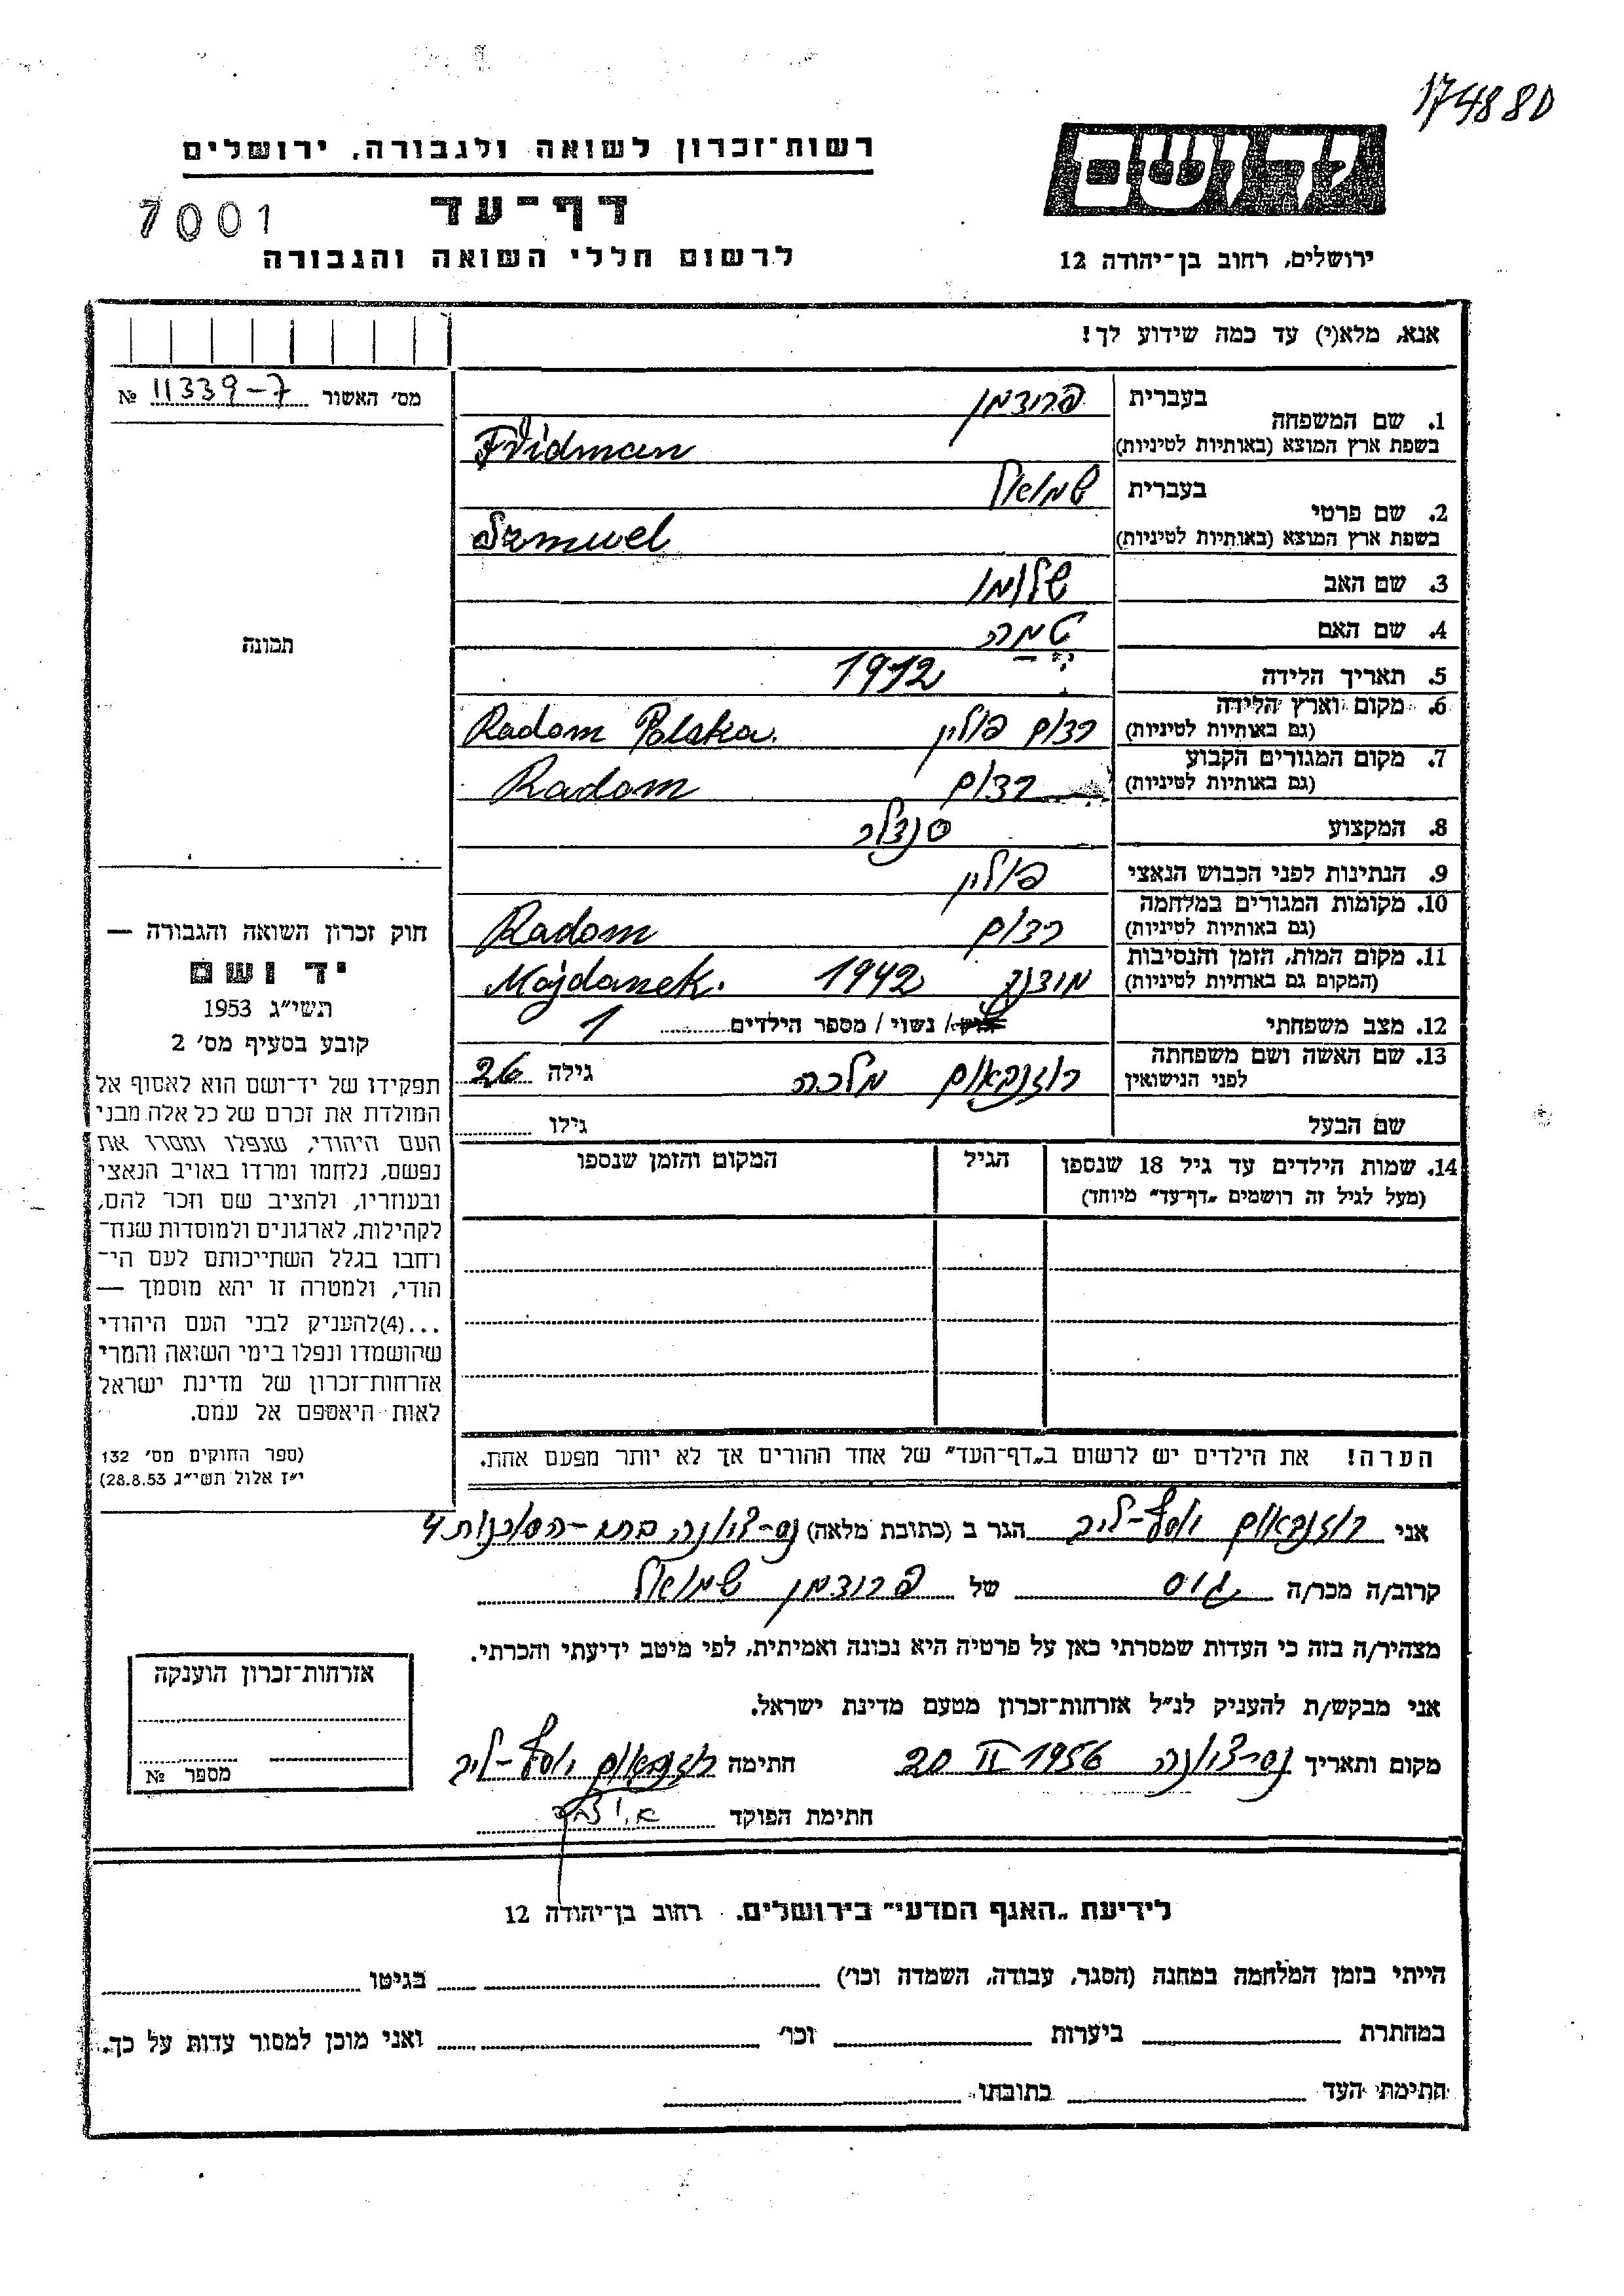 174880
רשות־זכרון לשואה ולגבורה, ירושלים
יד ושם
7001
דף־עד
לרשום חללי השואה והגבורה
ירושלים, רחוב בן־יהודה 12
אנא, מלא(י) עד כמה שידוע לך!
מס׳ האשור № 11339-7
1. שם המשפחה בעברית פרידמן
בשפת ארץ המוצא (באותיות לטיניות) Fridman
2. שם פרטי בעברית שמואל
בשפת ארץ המוצא (באותיות לטיניות) Szmuel
3. שם האב שלומו
4. שם האם
5. תאריך הלידה 1912
6. מקום וארץ הלידה (גם באותיות לטיניות) רדום פולין Radom Polska.
7. מקום המגורים הקבוע (גם באותיות לטיניות) רדום Radom
8. המקצוע סנדלר
9. הנתינות לפני הכבוש הנאצי פולין
10. מקומות המגורים במלחמה (גם באותיות לטיניות) רדום Radom
11. מקום המות, הזמן והנסיבות (המקום גם באותיות לטיניות) מידנק 1942 Majdanek.
12. מצב משפחתי רווק / נשוי / מספר הילדים 1
13. שם האשה ושם משפחתה לפני הנישואין רוזנבאום מלכה גילה 26
שם הבעל גילו
14. שמות הילדים עד גיל 18 שנספו
(מעל לגיל זה רושמים „דף־עד״ מיוחד)
הגיל
המקום והזמן שנספו
תמונה
חוק זכרון השואה והגבורה —
יד ושם
תשי״ג 1953
קובע בסעיף מס׳ 2
תפקידו של יד־ושם הוא לאסוף אל
המולדת את זכרם של כל אלה מבני
העם היהודי, שנפלו ומסרו את
נפשם, נלחמו ומרדו באויב הנאצי
ובעוזריו, ולהציב שם וזכר להם,
לקהילות, לארגונים ולמוסדות שנח־
רבו בגלל השתייכותם לעם הי־
הודי, ולמטרה זו יהא מוסמך —
...(4) להעניק לבני העם היהודי
שהושמדו ונפלו בימי השואה והמרי
אזרחות־זכרון של מדינת ישראל
לאות היאספם אל עמם.
(ספר החוקים מס׳ 132
י״ז אלול תשי״ג 28.8.53)
הערה! את הילדים יש לרשום ב„דף־העד״ של אחד ההורים אך לא יותר מפעם אחת.
אני רוזנבאום יוסף-ליב הגר ב (כתובת מלאה) נס-ציונה
קרוב/ה מכר/ה גיס של פרידמן שמואל
מצהיר/ה בזה כי העדות שמסרתי כאן על פרטיה היא נכונה ואמיתית, לפי מיטב ידיעתי והכרתי.
אני מבקש/ת להעניק לנ״ל אזרחות־זכרון מטעם מדינת ישראל.
מקום ותאריך נס-ציונה 20 II 1956 חתימה רוזנבאום יוסף-ליב
חתימת הפוקד
אזרחות־זכרון הוענקה
מספר №
לידיעת „האגף המדעי״ בירושלים. רחוב בן־יהודה 12
הייתי בזמן המלחמה במחנה (הסגר, עבודה, השמדה וכו׳) בגיטו
במחתרת ביערות וכו׳ ואני מוכן למסור עדות על כך.
חתימת העד כתובתו